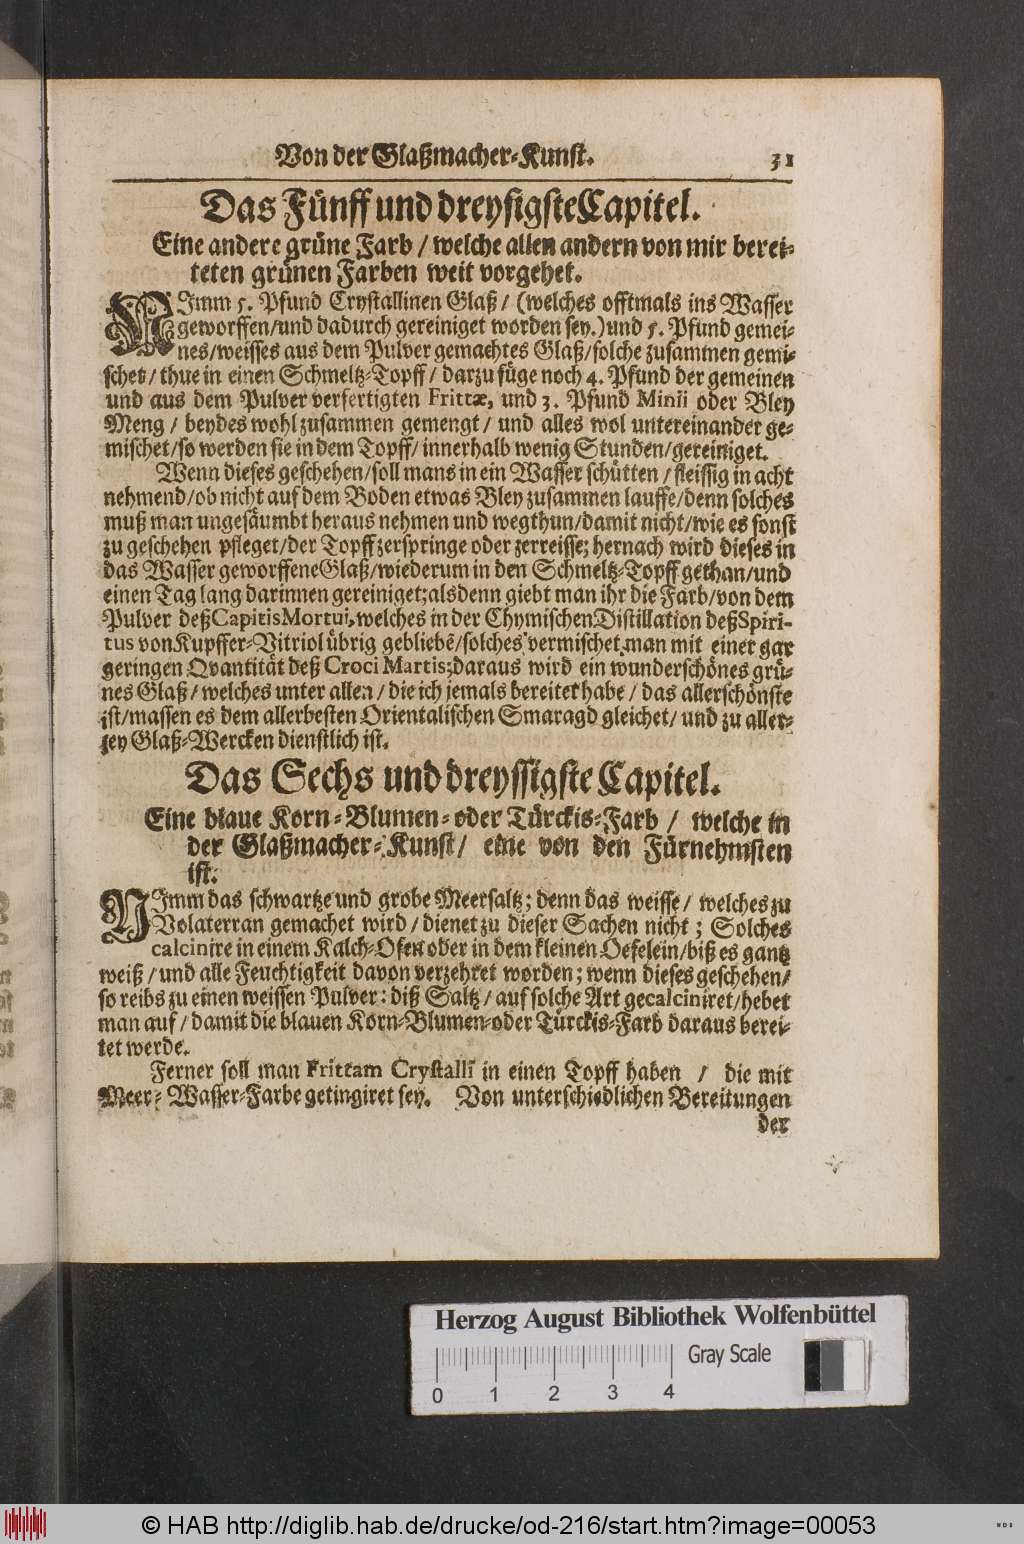 Von der Glaßmacher-Kunst. 31
Das Fünff und dreysigste Capitel.
Eine andere grüne Farb / welche allen andern von mir berei-
teten grünen Farben weit vorgehet.
NImm 5. Pfund Crystallinen Glaß / (welches offtmals ins Wasser
geworffen/und dadurch gereiniget worden sey.) und 5. Pfund gemei-
nes/weisses aus dem Pulver gemachtes Glaß/solche zusammen gemi-
schet/thue in einen Schmeltz-Topff/ darzu füge noch 4. Pfund der gemeinen
und aus dem Pulver verfertigten Frittæ, und 3. Pfund Minii oder Bley
Meng / beydes wohl zusammen gemengt / und alles wol untereinander ge-
mischet/so werden sie in dem Topff/innerhalb wenig Stunden/gereiniget.
Wenn dieses geschehen/soll mans in ein Wasser schütten / fleissig in acht
nehmend/ob nicht auf dem Boden etwas Bley zusammen lauffe/denn solches
muß man ungesäumbt heraus nehmen und wegthun/damit nicht/wie es sonst
zu geschehen pfleget/der Topff zerspringe oder zerreisse; hernach wird dieses in
das Wasser geworffene Glaß/wiederum in den Schmeltz-Topff gethan/und
einen Tag lang darinnen gereiniget; alsdenn giebt man ihr die Farb/von dem
Pulver deß Capitis Mortui, welches in der Chymischen Distillation deß Spiri-
tus von Kupffer-Vitriol übrig gebliebē/solches vermischet man mit einer gar
geringen Qvantität deß Croci Martis; daraus wird ein wunderschönes grü-
nes Glaß/welches unter allen / die ich jemals bereitet habe/ das allerschönste
ist/massen es dem allerbesten Orientalischen Smaragd gleichet/ und zu aller-
ley Glaß-Wercken dienstlich ist.
Das Sechs und dreyssigste Capitel.
Eine blaue Korn-Blumen- oder Türckis-Farb / welche in
der Glaßmacher-Kunst/ eine von den Fürnehmsten
ist.
NImm das schwartze und grobe Meersaltz; denn das weisse / welches zu
Volaterran gemachet wird / dienet zu dieser Sachen nicht; Solches
calcinire in einem Kalch-Ofen oder in dem kleinen Oefelein/biß es gantz
weiß / und alle Feuchtigkeit davon verzehret worden; wenn dieses geschehen/
so reibs zu einen weissen Pulver: diß Saltz / auf solche Art gecalciniret/hebet
man auf / damit die blauen Korn-Blumen-oder Türckis-Farb daraus berei-
tet werde.
Ferner soll man Frittam Crystalli in einen Topff haben / die mit
Meer-Wasser-Farbe getingiret sey. Von unterschiedlichen Bereitungen
der
Herzog August Bibliothek Wolfenbüttel
Gray Scale
0 1 2 3 4
© HAB http://diglib.hab.de/drucke/od-216/start.htm?image=00053